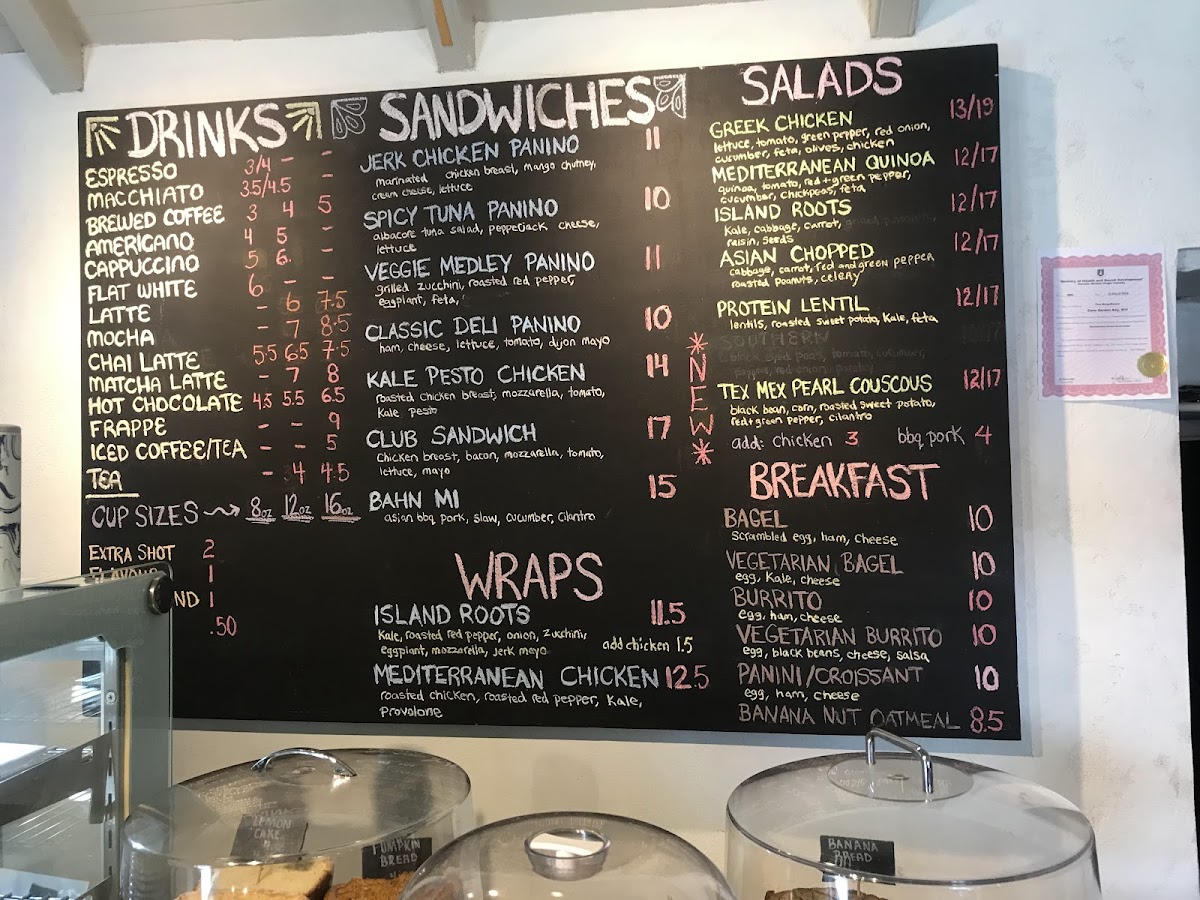 DRINKS
ESPRESSO 3/4 - -
MACCHIATO 3.5/4.5 -
BREWED COFFEE 3 4 5
AMERICANO 4 5 -
CAPPUCCINO 5 6 -
FLAT WHITE 6 - -
LATTE - 6 7.5
MOCHA - 7 8.5
CHAI LATTE 5.5 6.5 7.5
MATCHA LATTE - 7 8
HOT CHOCOLATE 4.5 5.5 6.5
FRAPPE - - 9
ICED COFFEE/TEA - - 5
TEA - 4 4.5
CUP SIZES 8oz 12oz 16oz
EXTRA SHOT 2
1
1
.50
SANDWICHES
JERK CHICKEN PANINO 11
marinated chicken breast, mango chutney,
cream cheese, lettuce
SPICY TUNA PANINO 10
albacore tuna salad, pepperjack cheese,
lettuce
VEGGIE MEDLEY PANINO 11
grilled zucchini, roasted red pepper,
eggplant, feta,
CLASSIC DELI PANINO 10
ham, cheese, lettuce, tomato, dijon mayo
KALE PESTO CHICKEN 14
roasted chicken breast, mozzarella, tomato,
Kale pesto
CLUB SANDWICH 17
Chicken breast, bacon, mozzarella, tomato,
lettuce, mayo
BAHN MI 15
asian bbq pork, slaw, cucumber, cilantro
WRAPS
ISLAND ROOTS 11.5
Kale, roasted red pepper, onion, zucchini,
eggplant, mozzarella, jerk mayo add chicken 1.5
MEDITERRANEAN CHICKEN 12.5
roasted chicken, roasted red pepper, Kale,
Provolone
SALADS
GREEK CHICKEN 13/19
lettuce, tomato, green pepper, red onion,
cucumber, feta, olives, chicken
MEDITERRANEAN QUINOA 12/17
quinoa, tomato, red + green pepper,
cucumber, chickpeas, feta
ISLAND ROOTS 12/17
Kale, cabbage, carrot,
raisin, seeds
ASIAN CHOPPED 12/17
cabbage, carrot, red and green pepper
roasted peanuts, celery
PROTEIN LENTIL 12/17
lentils, roasted sweet potato, Kale, feta
SOUTHERN
black eyed peas, tomato, cucumber,
*NEW*
TEX MEX PEARL COUSCOUS 12/17
black bean, corn, roasted sweet potato,
red+green pepper, cilantro
add: chicken 3 bbq pork 4
BREAKFAST
BAGEL 10
Scrambled egg, ham, cheese
VEGETARIAN BAGEL 10
egg, Kale, cheese
BURRITO 10
egg, ham, cheese
VEGETARIAN BURRITO 10
egg, black beans, cheese, salsa
PANINI/CROISSANT 10
egg, ham, cheese
BANANA NUT OATMEAL 8.5
LEMON
CAKE
PUMPKIN
BREAD
BANANA
BREAD